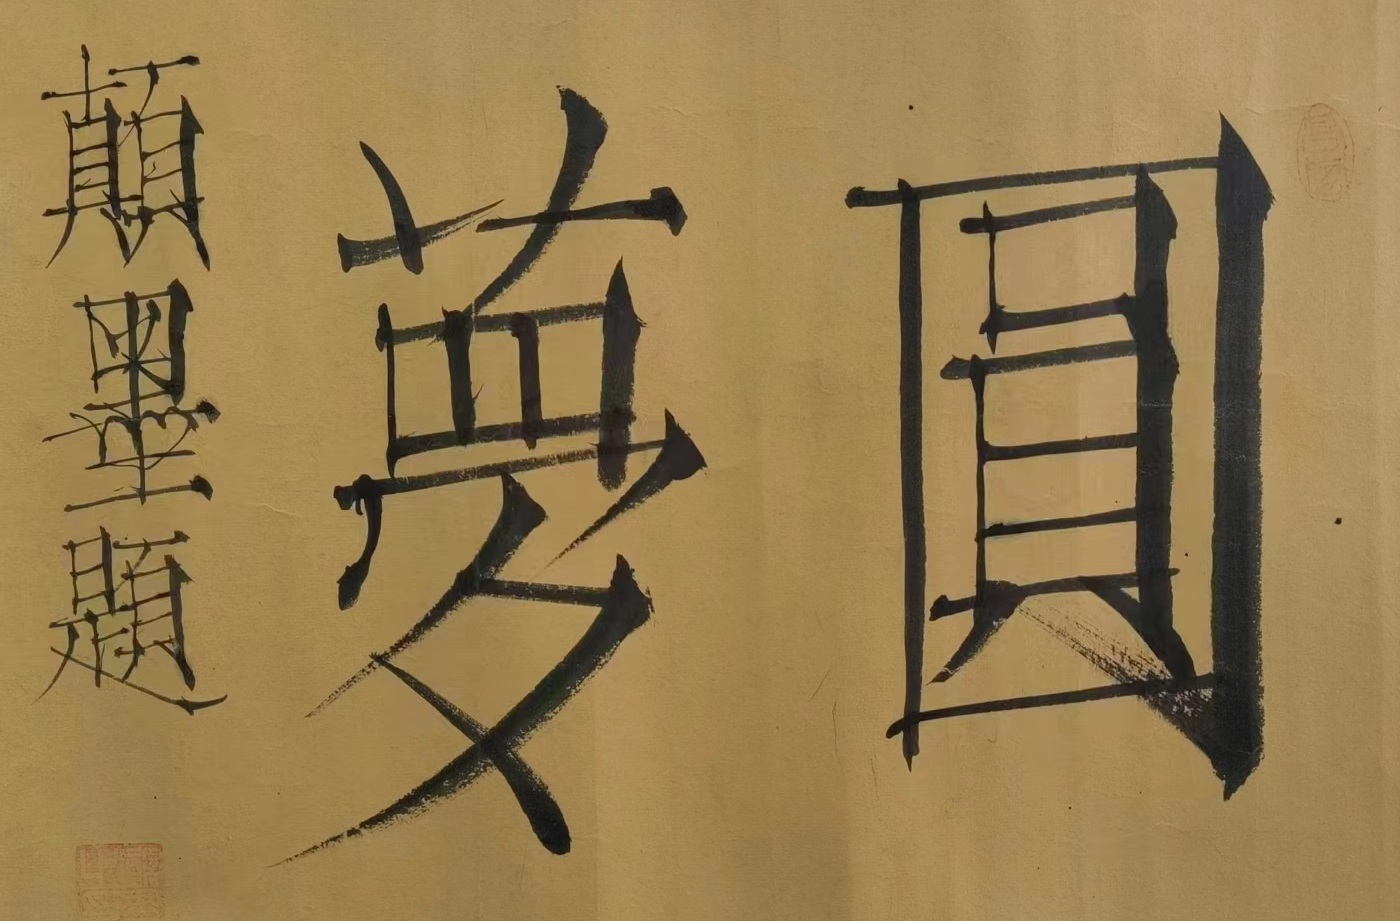 圓夢
顛墨題